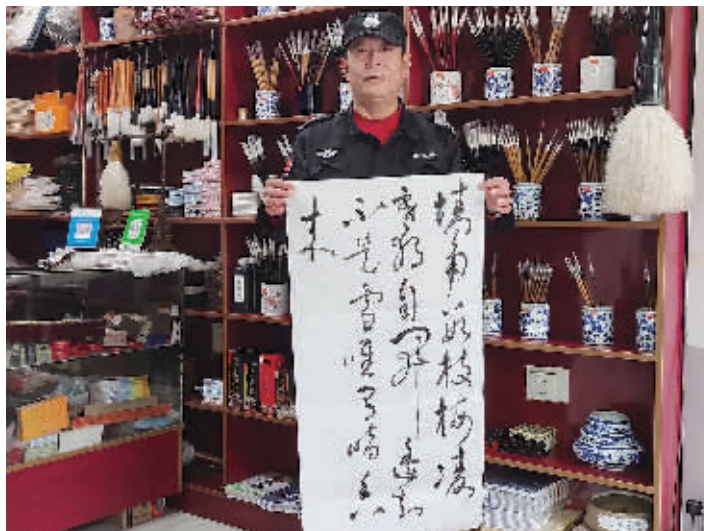 墙角数枝梅凌
寒独自开遥知
不是雪唯有暗香
来